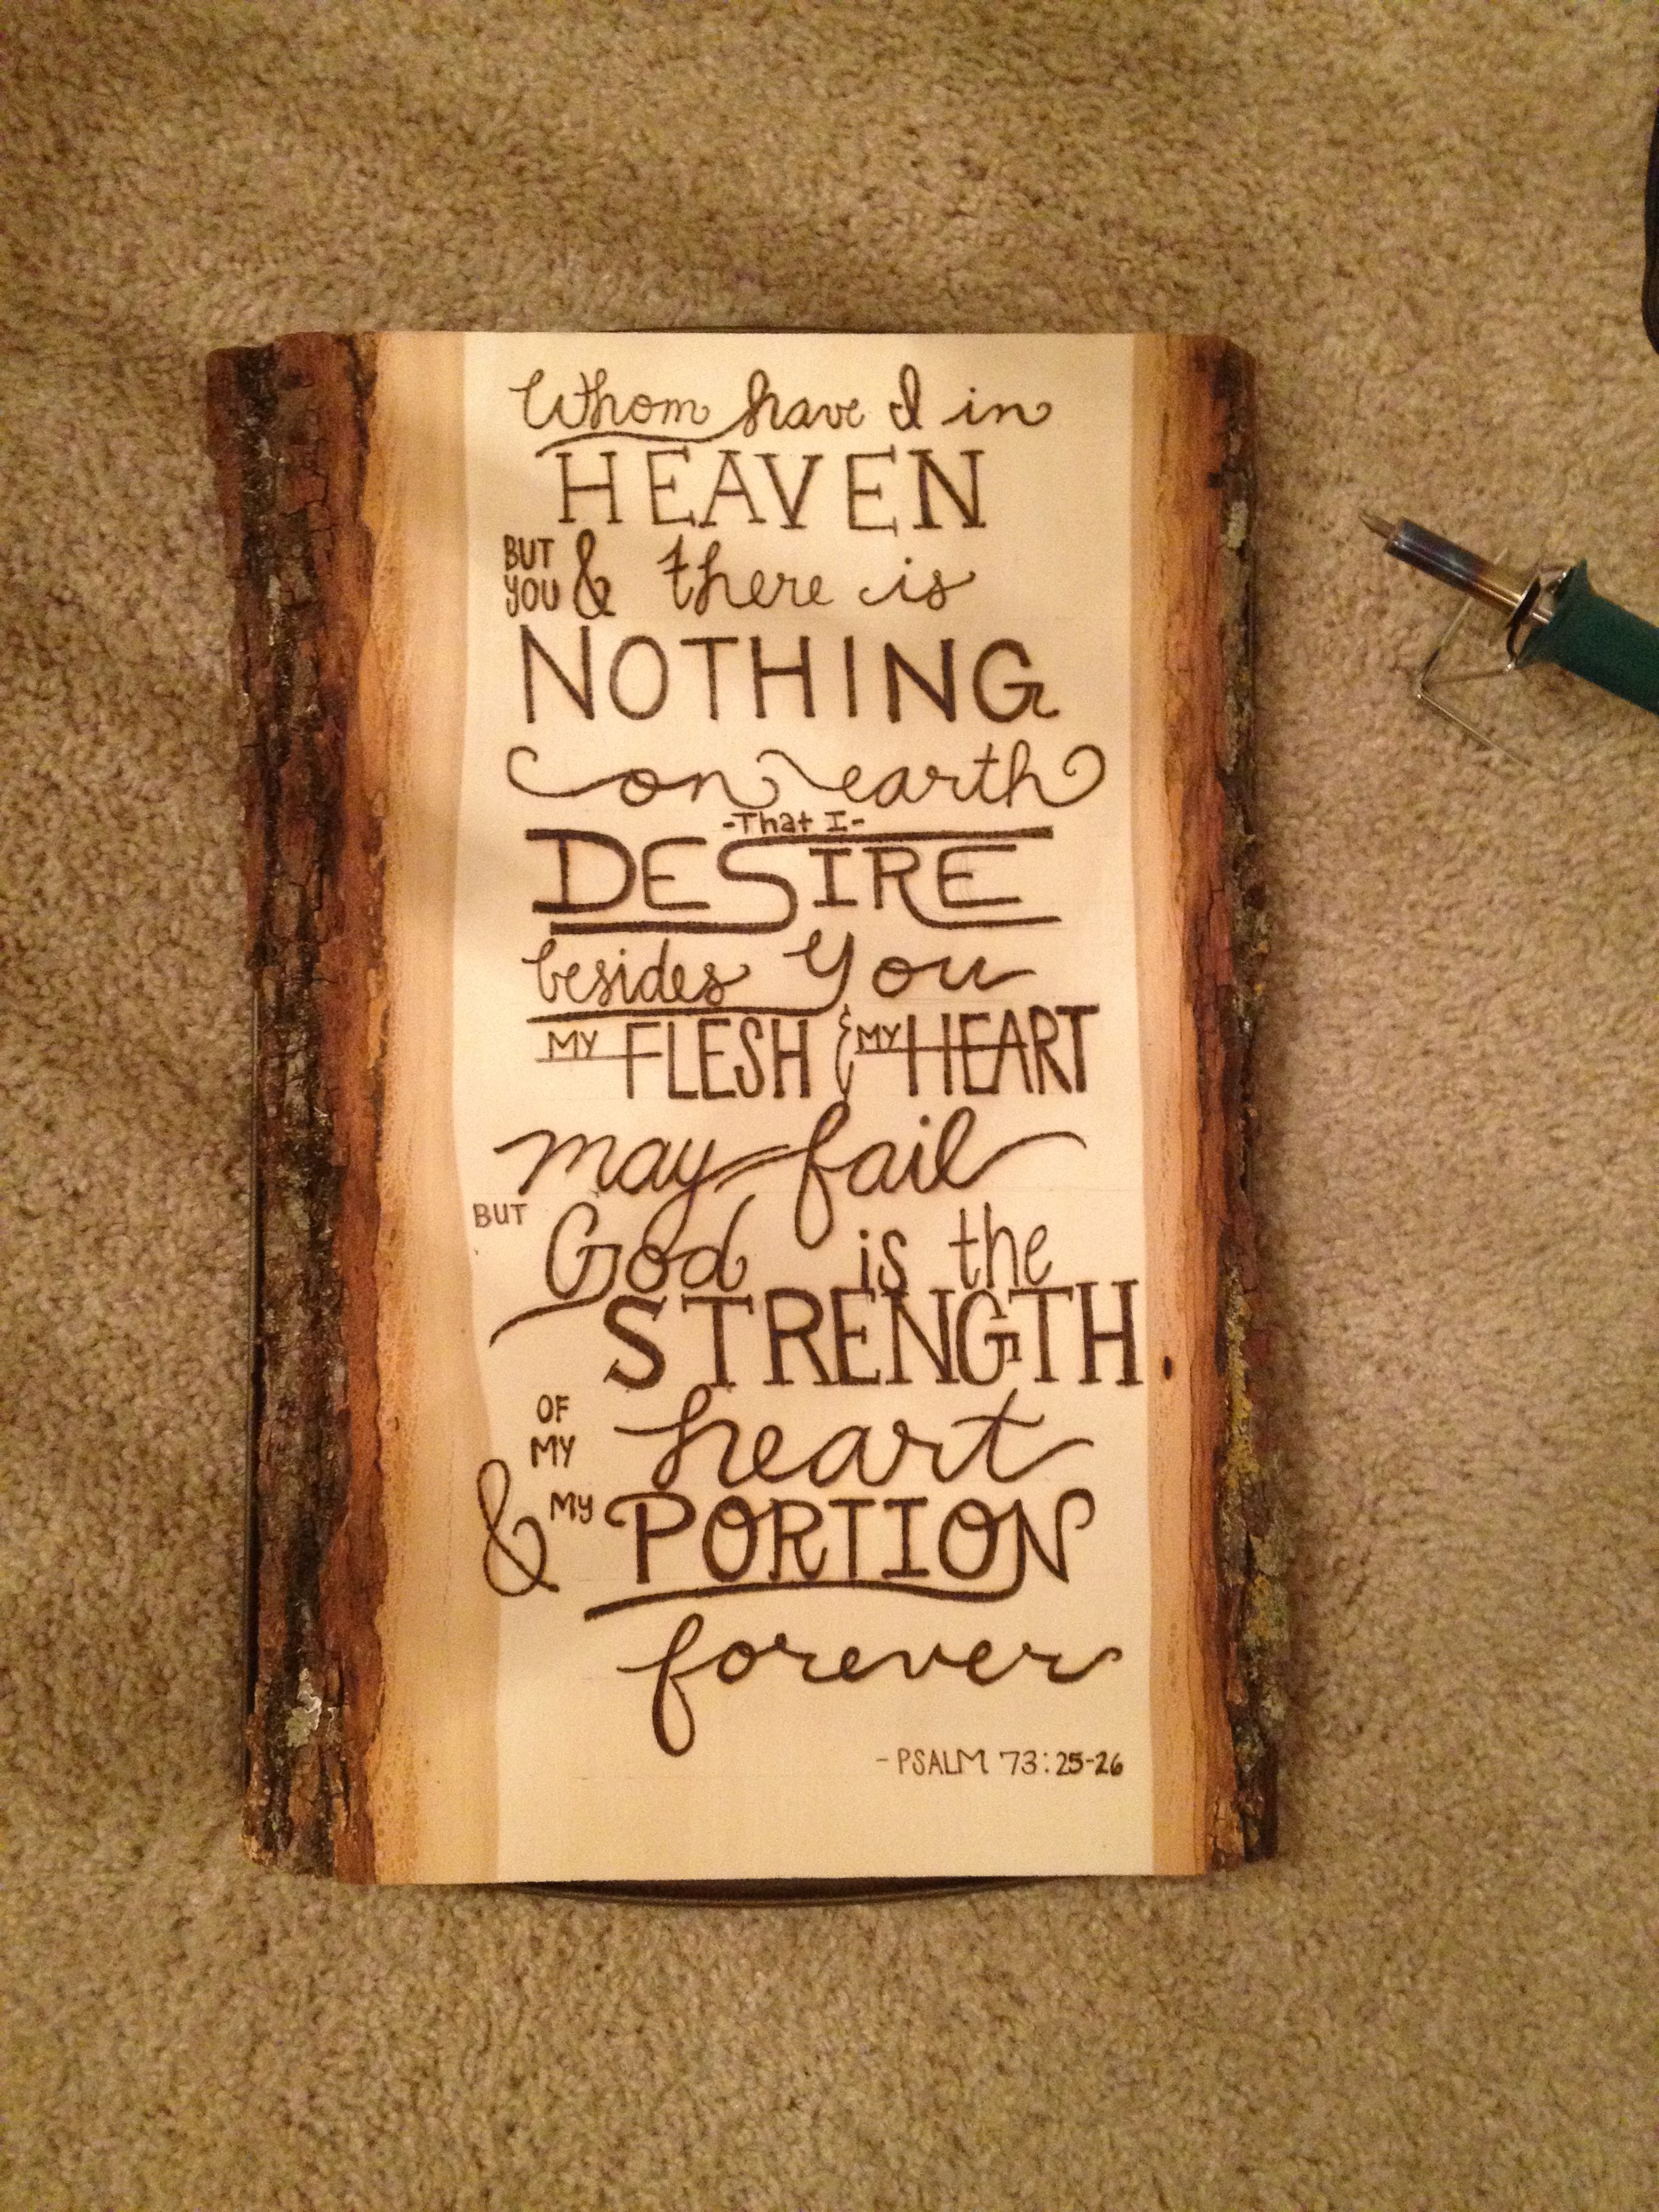 Whom have I in
HEAVEN
BUT YOU & there is
NOTHING
on earth
-That I-
DESIRE
besides you
MY FLESH & MY HEART
may fail
BUT God is the
STRENGTH
OF MY heart
& MY PORTION
forever
- PSALM 73:25-26